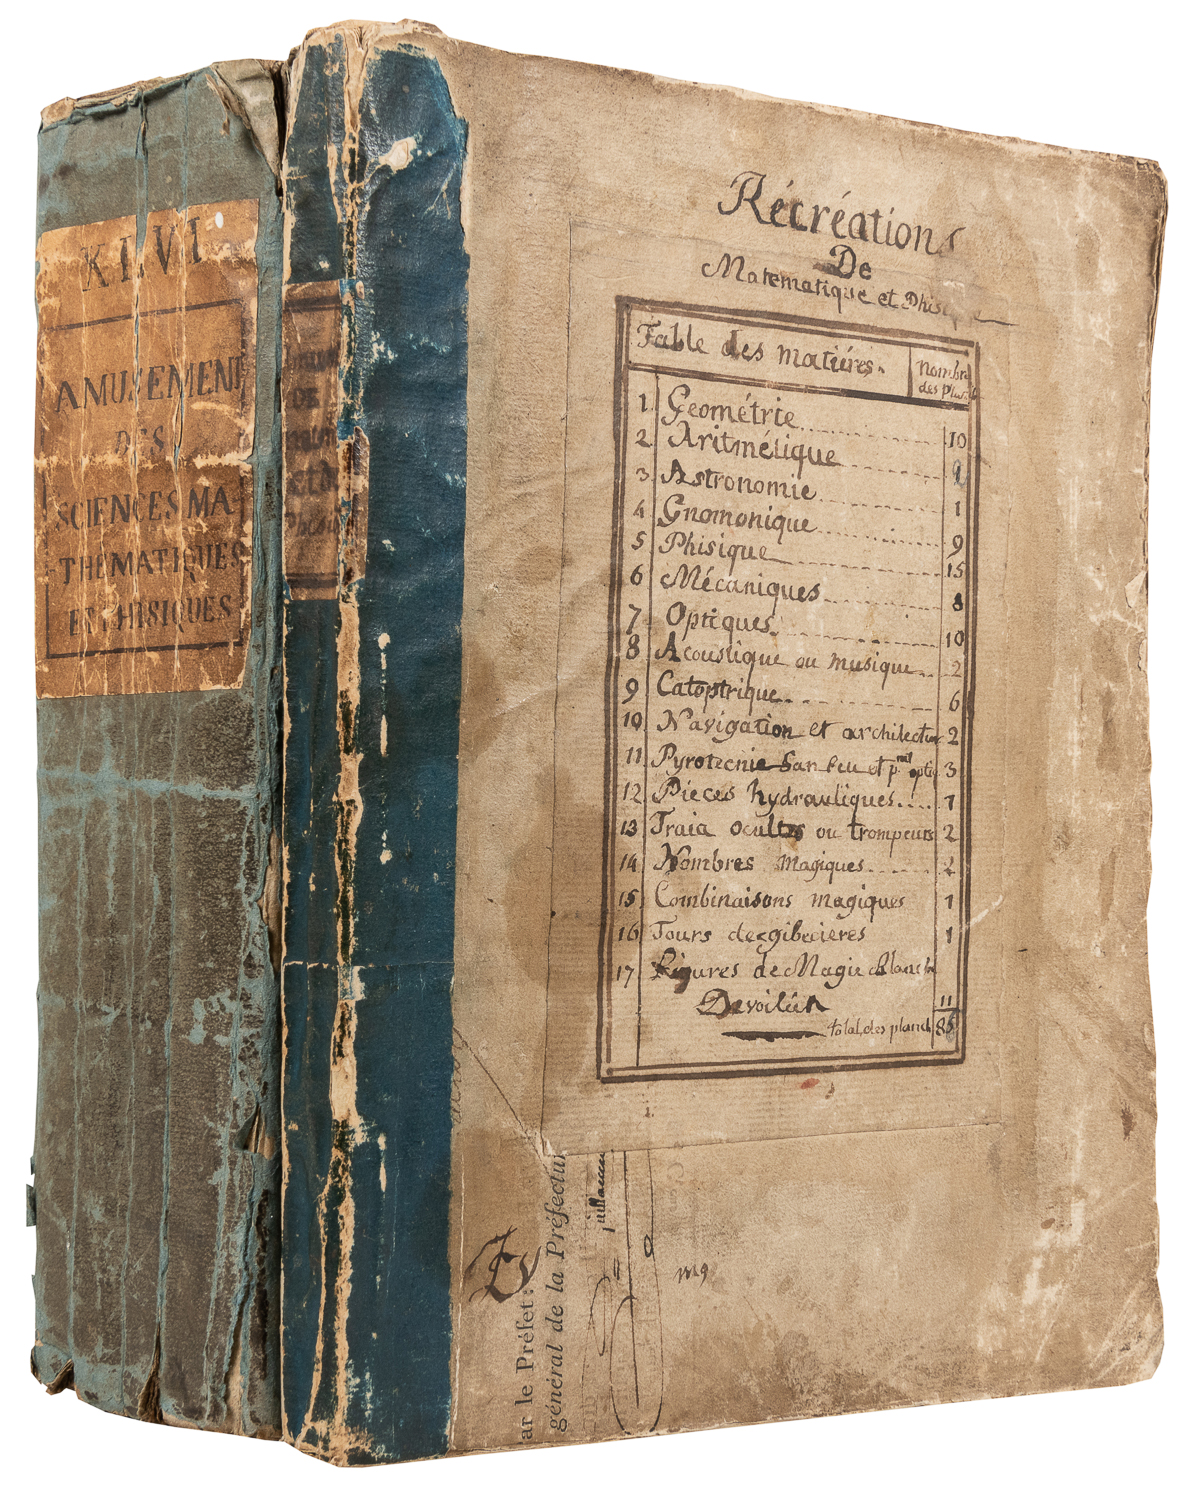 XLVI
AMUZEMENT
DES
SCIENCES MA-
THEMATIQUES
ET PHISIQUES
DE
Récréations
De
Matematique et Phisique
Table des matiéres.
Nombre
des
1 Geométrie 10
2 Aritmétique
3 Astronomie 1
4 Gnomonique 9
5 Phisique 15
6 Mécaniques 8
7 Optiques 10
8 Acoustique ou musique 2
9 Catoptrique 6
10 Navigation et architectur 2
11 Pyrotecnie San feu et 3
12 Pieces hydrauliques 1
13 Traia ocultes ou trompeurs 2
14 Nombres magiques 2
15 Combinaisons magiques 1
16 Tours de gibecieres 1
17 Figures de Magie Blanche
Devoilées 11
total des planch 85
ar le Préfet:
général de la Préfectur